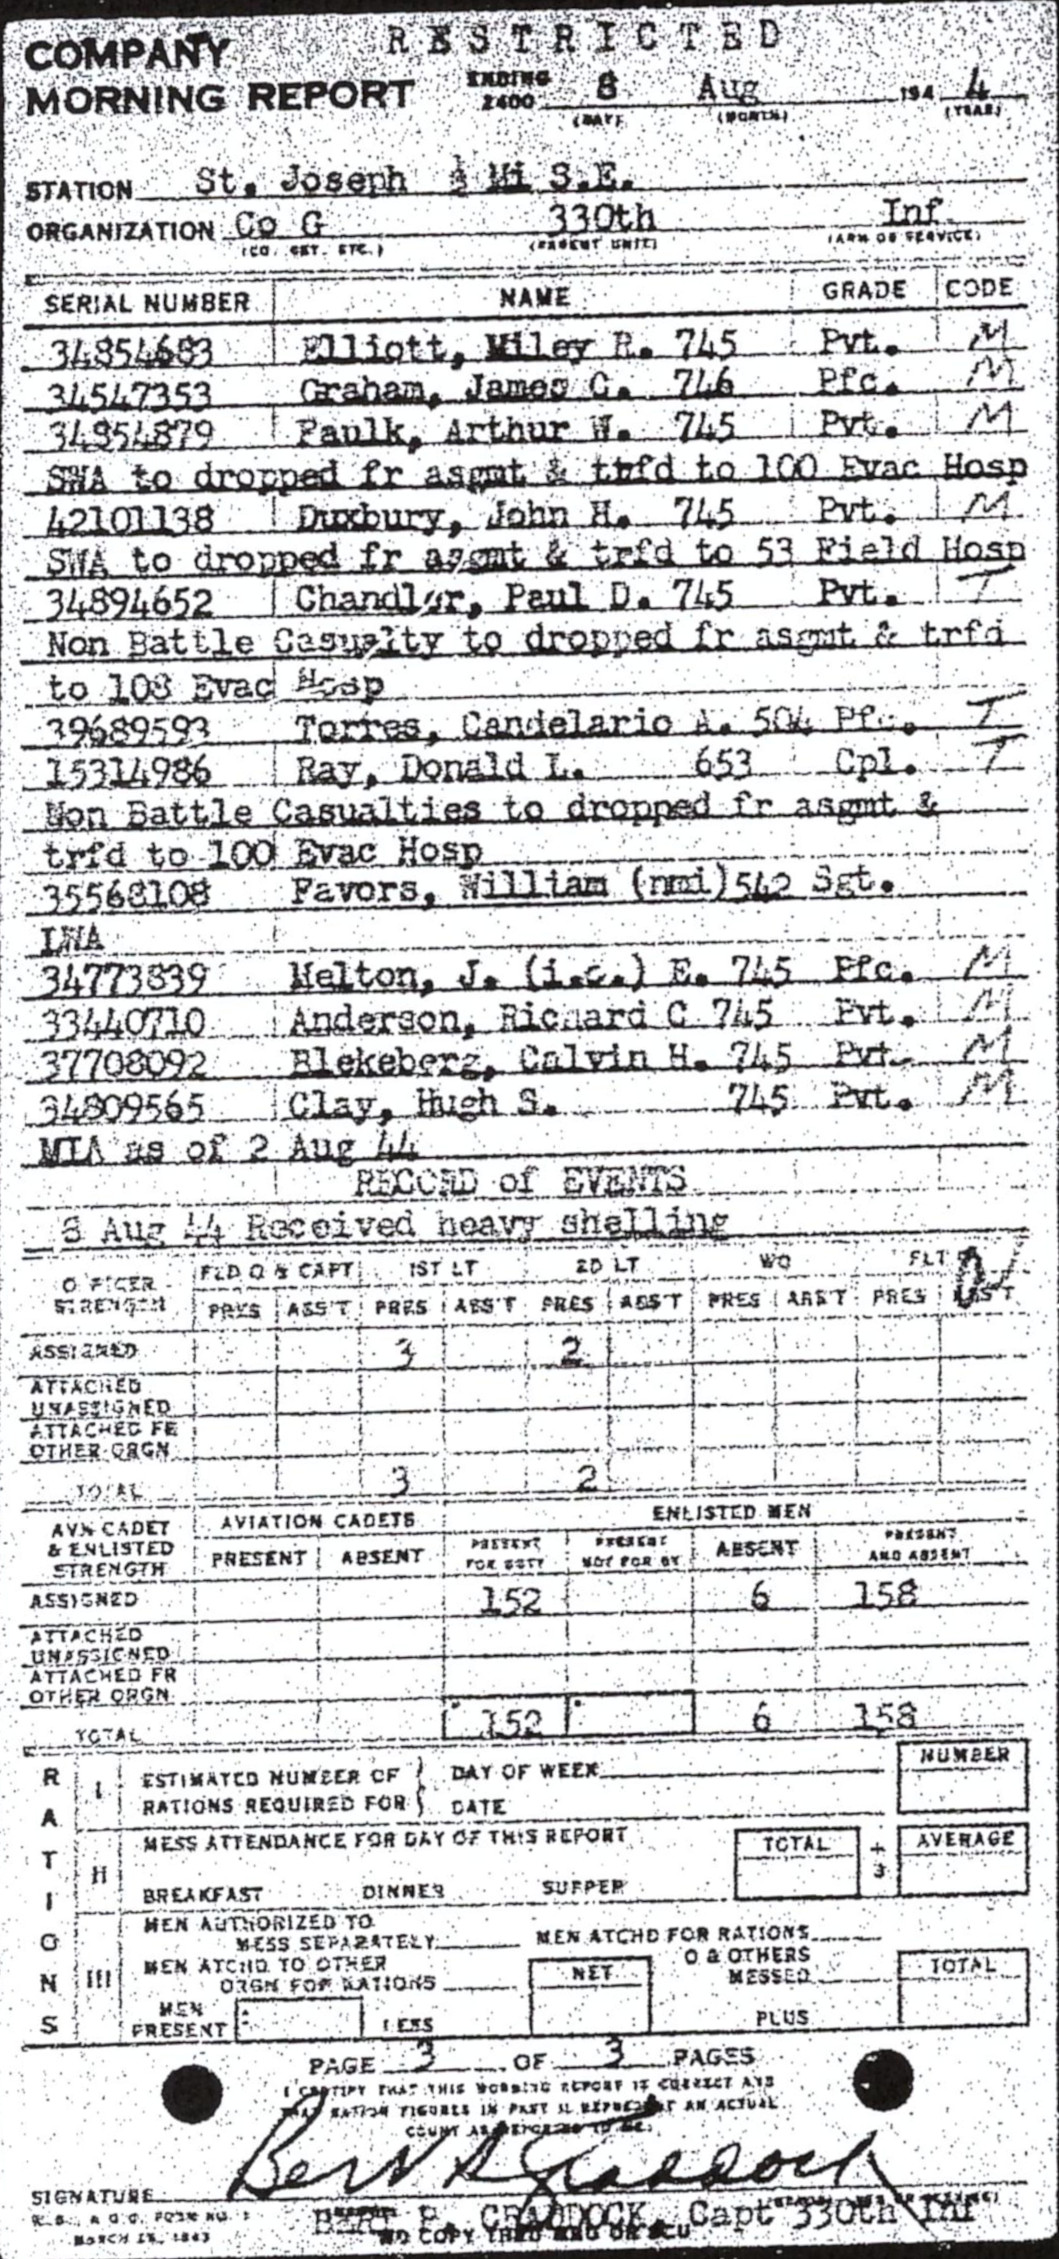 RESTRICTED
COMPANY
MORNING REPORT ENDING 2400 8 Aug 194 4
(DAY) (MONTH) (YEAR)
STATION St. Joseph ½ Mi S.E.
ORGANIZATION Co G 330th Inf
(CO. DET. ETC.) (PARENT UNIT) (ARM OR SERVICE)
SERIAL NUMBER NAME GRADE CODE
34854683 Elliott, Wiley R. 745 Pvt. M
34547353 Graham, James C. 746 Pfc. M
34854879 Faulk, Arthur W. 745 Pvt. M
SWA to dropped fr asgmt & trfd to 100 Evac Hosp
42101138 Duxbury, John H. 745 Pvt. M
SWA to dropped fr asgmt & trfd to 53 Field Hosp
34894652 Chandler, Paul D. 745 Pvt. T
Non Battle Casualty to dropped fr asgmt & trfd
to 108 Evac Hosp
39689593 Torres, Candelario A. 504 Pfc. T
15314986 Ray, Donald L. 653 Cpl. T
Non Battle Casualties to dropped fr asgmt &
trfd to 100 Evac Hosp
35568108 Favors, William (nmi) 542 Sgt.
LWA
34773839 Melton, J. (i.o.) E. 745 Pfc. M
33440710 Anderson, Richard C 745 Pvt. M
37708092 Blekeberg, Calvin H. 745 Pvt. M
34809565 Clay, Hugh S. 745 Pvt. M
MIA as of 2 Aug 44
RECORD of EVENTS
8 Aug 44 Received heavy shelling
OFFICER STRENGTH FLD O & CAPT 1ST LT 2D LT WO FLT O
PRES ABS'T PRES ABS'T PRES ABS'T PRES ABS'T PRES ABS'T
ASSIGNED 3 2
ATTACHED UNASSIGNED
ATTACHED FR OTHER ORGN
TOTAL 3 2
AVN CADET & ENLISTED STRENGTH AVIATION CADETS ENLISTED MEN
PRESENT ABSENT PRESENT FOR DUTY PRESENT NOT FOR DY ABSENT PRESENT AND ABSENT
ASSIGNED 152 6 158
ATTACHED UNASSIGNED
ATTACHED FR OTHER ORGN
TOTAL 152 6 158
RATIONS
I ESTIMATED NUMBER OF RATIONS REQUIRED FOR DAY OF WEEK DATE NUMBER
II MESS ATTENDANCE FOR DAY OF THIS REPORT TOTAL ÷ 3 AVERAGE
BREAKFAST DINNER SUPPER
III MEN AUTHORIZED TO MESS SEPARATELY MEN ATCHD FOR RATIONS
MEN ATCHD TO OTHER ORGN FOR RATIONS NET O & OTHERS MESSED TOTAL
MEN PRESENT LESS PLUS
PAGE 3 OF 3 PAGES
I CERTIFY THAT THIS MORNING REPORT IS CORRECT AND
THAT RATION FIGURES IN PART II REPRESENT AN ACTUAL
COUNT AS REPORTED TO ME.
Bert R Craddock
SIGNATURE
BERT R. CRADDOCK, Capt 330th Inf
W. D., A G O. FORM NO. 1
MARCH 15, 1943